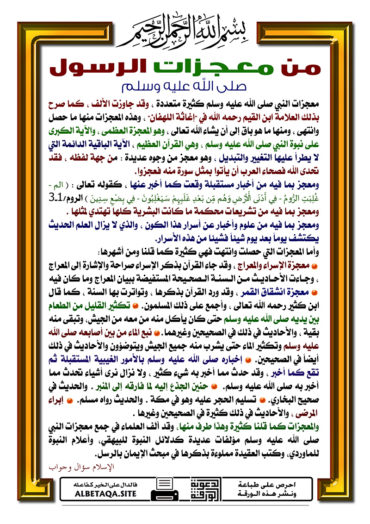 بسم الله الرحمن الرحيم
من معجزات الرسول
صلى الله عليه وسلم
معجزات النبي صلى الله عليه وسلم كثيرة متعددة ، وقد جاوزت الألف ، كما صرح
بذلك العلامة ابن القيم رحمه الله في "إغاثة اللهفان" ، وهذه المعجزات منها ما حصل
وانتهى ، ومنها ما هو باق إلى أن يشاء الله تعالى ، وهو المعجزة العظمى ، والآية الكبرى
على نبوة النبي صلى الله عليه وسلم ، وهي القرآن العظيم ، الآية الباقية الدائمة التي
لا يطرأ عليها التغيير والتبديل ، وهو معجز من وجوه عديدة : من جهة لفظه ، فقد
تحدى الله فصحاء العرب أن يأتوا بمثل سورة منه فعجزوا.
ومعجز بما فيه من أخبار مستقبلة وقعت كما أخبر عنها ، كقوله تعالى : ( الم -
غُلِبَتِ الرُّومُ - فِي أَدْنَى الْأَرْضِ وَهُم مِّن بَعْدِ غَلَبِهِمْ سَيَغْلِبُونَ - فِي بِضْعِ سِنِينَ ) الروم/3.1
ومعجز بما فيه من تشريعات محكمة ما كانت البشرية كلها تهتدي لمثلها .
ومعجز بما فيه من علوم وأخبار عن أسرار هذا الكون ، والذي لا يزال العلم الحديث
يكتشف يوماً بعد يوم شيئاً فشيئاً من هذه الأسرار.
وأما المعجزات التي حصلت وانتهت فهي كثيرة كما قلنا ومن أشهرها:
معجزة الإسراء والمعراج ، وقد جاء القرآن بذكر الإسراء صراحة والإشارة إلى المعراج
، وجـاءت الأحـاديـث مـن الـسنـة الـصحيـحة المستفيضة ببيان المعراج وما كان فيه
معجزة انشقاق القمر ، وقد ورد القرآن بذكرها ، وتواترت بها السنة ، كما قال
ابن كثير رحمه الله تعالى ، وأجمع على ذلك المسلمون. تكثير القليل من الطعام
بين يديه صلى الله عليه وسلم حتى كان يأكل منه من معه من الجيش، وتبقى منه
بقية ، والأحاديث في ذلك في الصحيحين وغيرهما. نبع الماء من بين أصابعه صلى الله
عليه وسلم وتكثير الماء حتى يشرب منه جميع الجيش ويتوضؤون والأحاديث في ذلك
أيضاً في الصحيحين. إخباره صلى الله عليه وسلم بالأمور الغيبية المستقبلة ثم
تقع كما أخبر ، وقد حدث مما أخبر به شيء كثير ، ولا نزال نرى أشياء تحدث مما
أخبر به صلى الله عليه وسلم. حنين الجذع إليه لما فارقه إلى المنبر . والحديث في
صحيح البخاري. تسليم الحجر عليه وهو في مكة . والحديث رواه مسلم. إبراء
المرضى ، والأحاديث في ذلك كثيرة في الصحيحين وغيرها .
والمعجزات كما قلنا كثيرة وهذا طرف منها. وقد ألف العلماء في جمع معجزات النبي
صلى الله عليه وسلم مؤلفات عديدة كدلائل النبوة للبيهقي، وأعلام النبوة
للماوردي، وكتب العقيدة مملوءة بذكرها في مبحث الإيمان بالرسل.
الإسلام سؤال وجواب
احرص على طباعة
ونشـر هـذه الـورقـة
الدعوية
الورقة
فالدال على الخير كفاعله
ALBETAQA.SITE